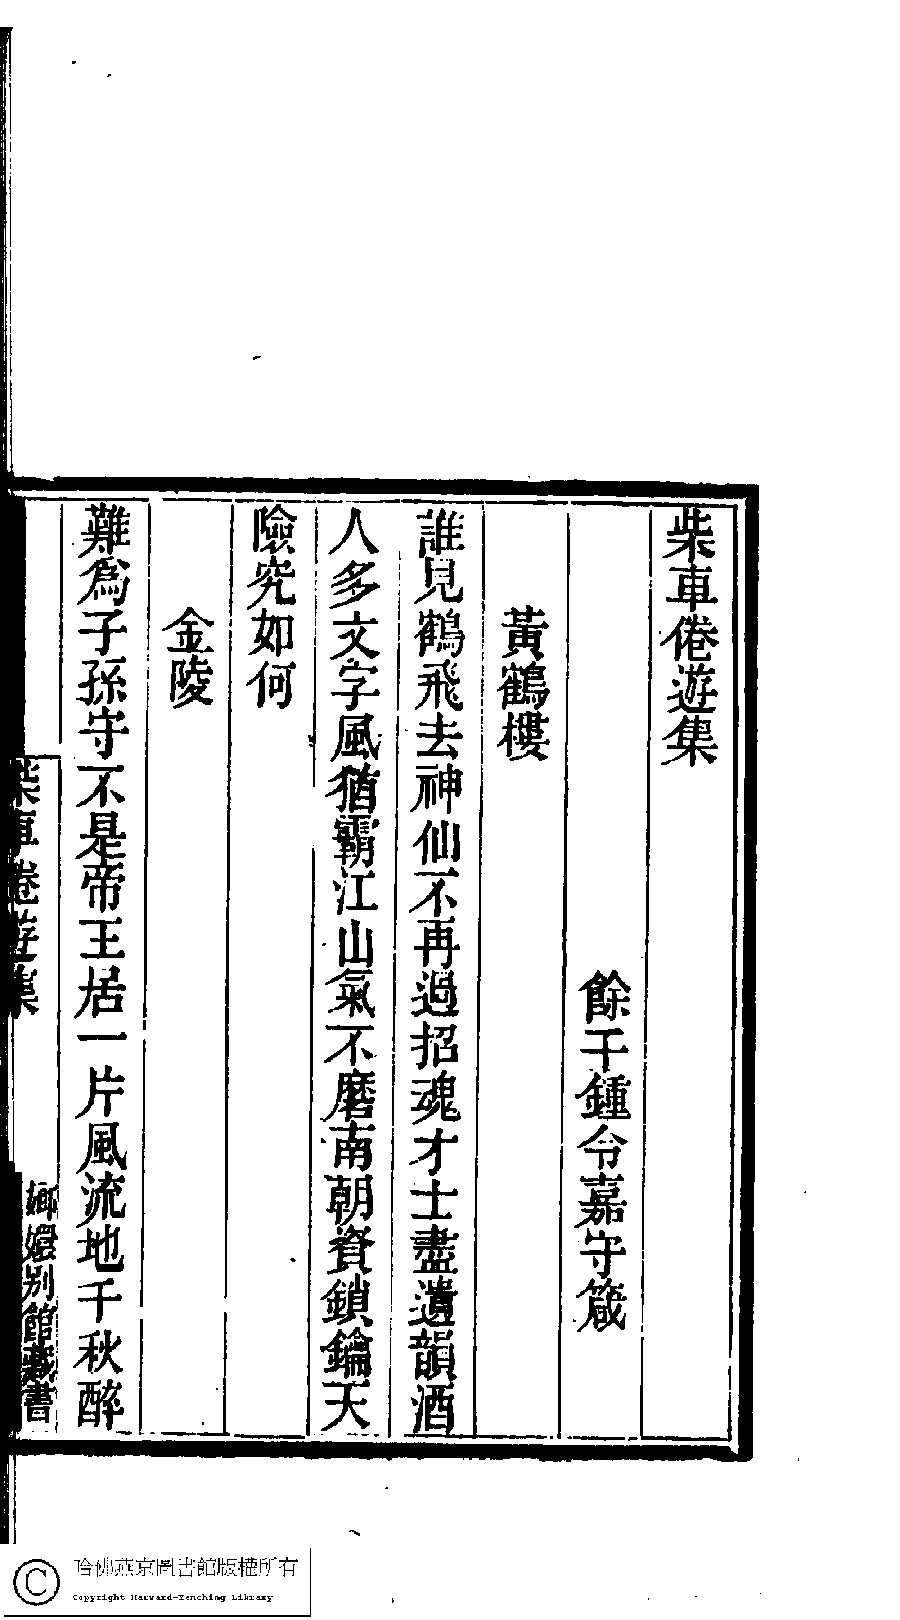 柴車倦遊集
餘干鍾令嘉守箴
黃鶴樓
誰見鶴飛去神仙不再過招魂才士盡遺韻酒
人多文字風猶霸江山氣不磨南朝資鎖鑰天
險究如何
金陵
難為子孫守不是帝王居一片風流地千秋醉
柴車倦遊集
嫏嬛別館藏書
哈佛燕京圖書館版權所有
Copyright Harvard-Yenching Library